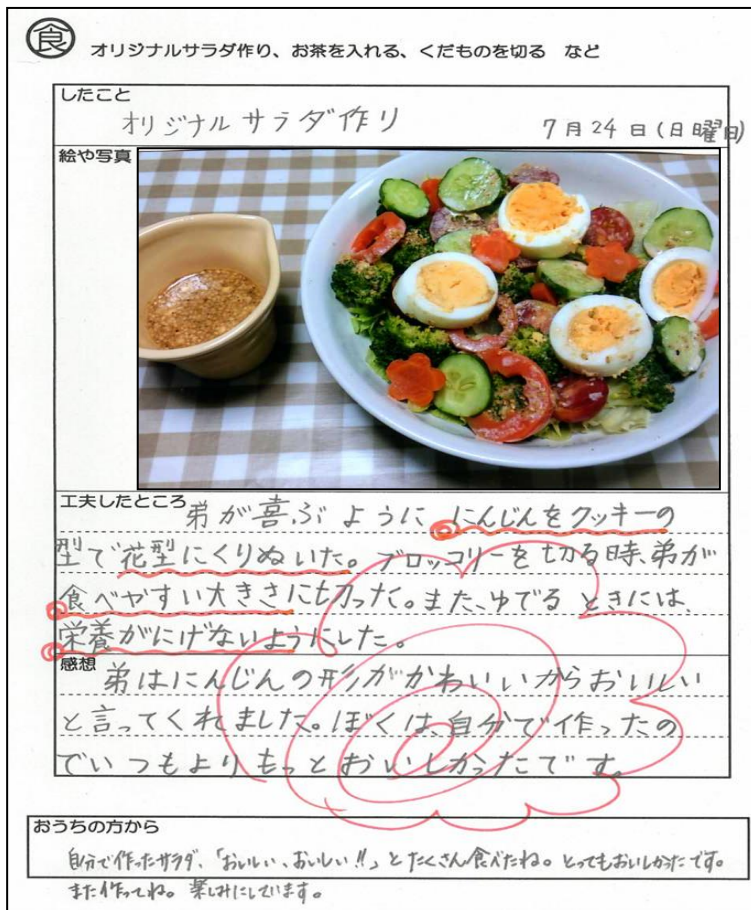 食
オリジナルサラダ作り、お茶を入れる、くだものを切る　など
したこと
オリジナルサラダ作り　7月24日(日曜日)
絵や写真
工夫したところ
弟が喜ぶように にんじんをクッキーの
型で花型にくりぬいた。ブロッコリーを切る時、弟が
食べやすい大きさに切った。また、ゆでるときには、
栄養がにげないようにした。
感想
弟はにんじんの形がかわいいからおいしい
と言ってくれました。ぼくは、自分で作ったの
でいつもよりもっとおいしかったです。
おうちの方から
自分で作ったサラダ、「おいしい、おいしい!!」とたくさん食べたね。とってもおいしかったです。
また作ってね。楽しみにしています。